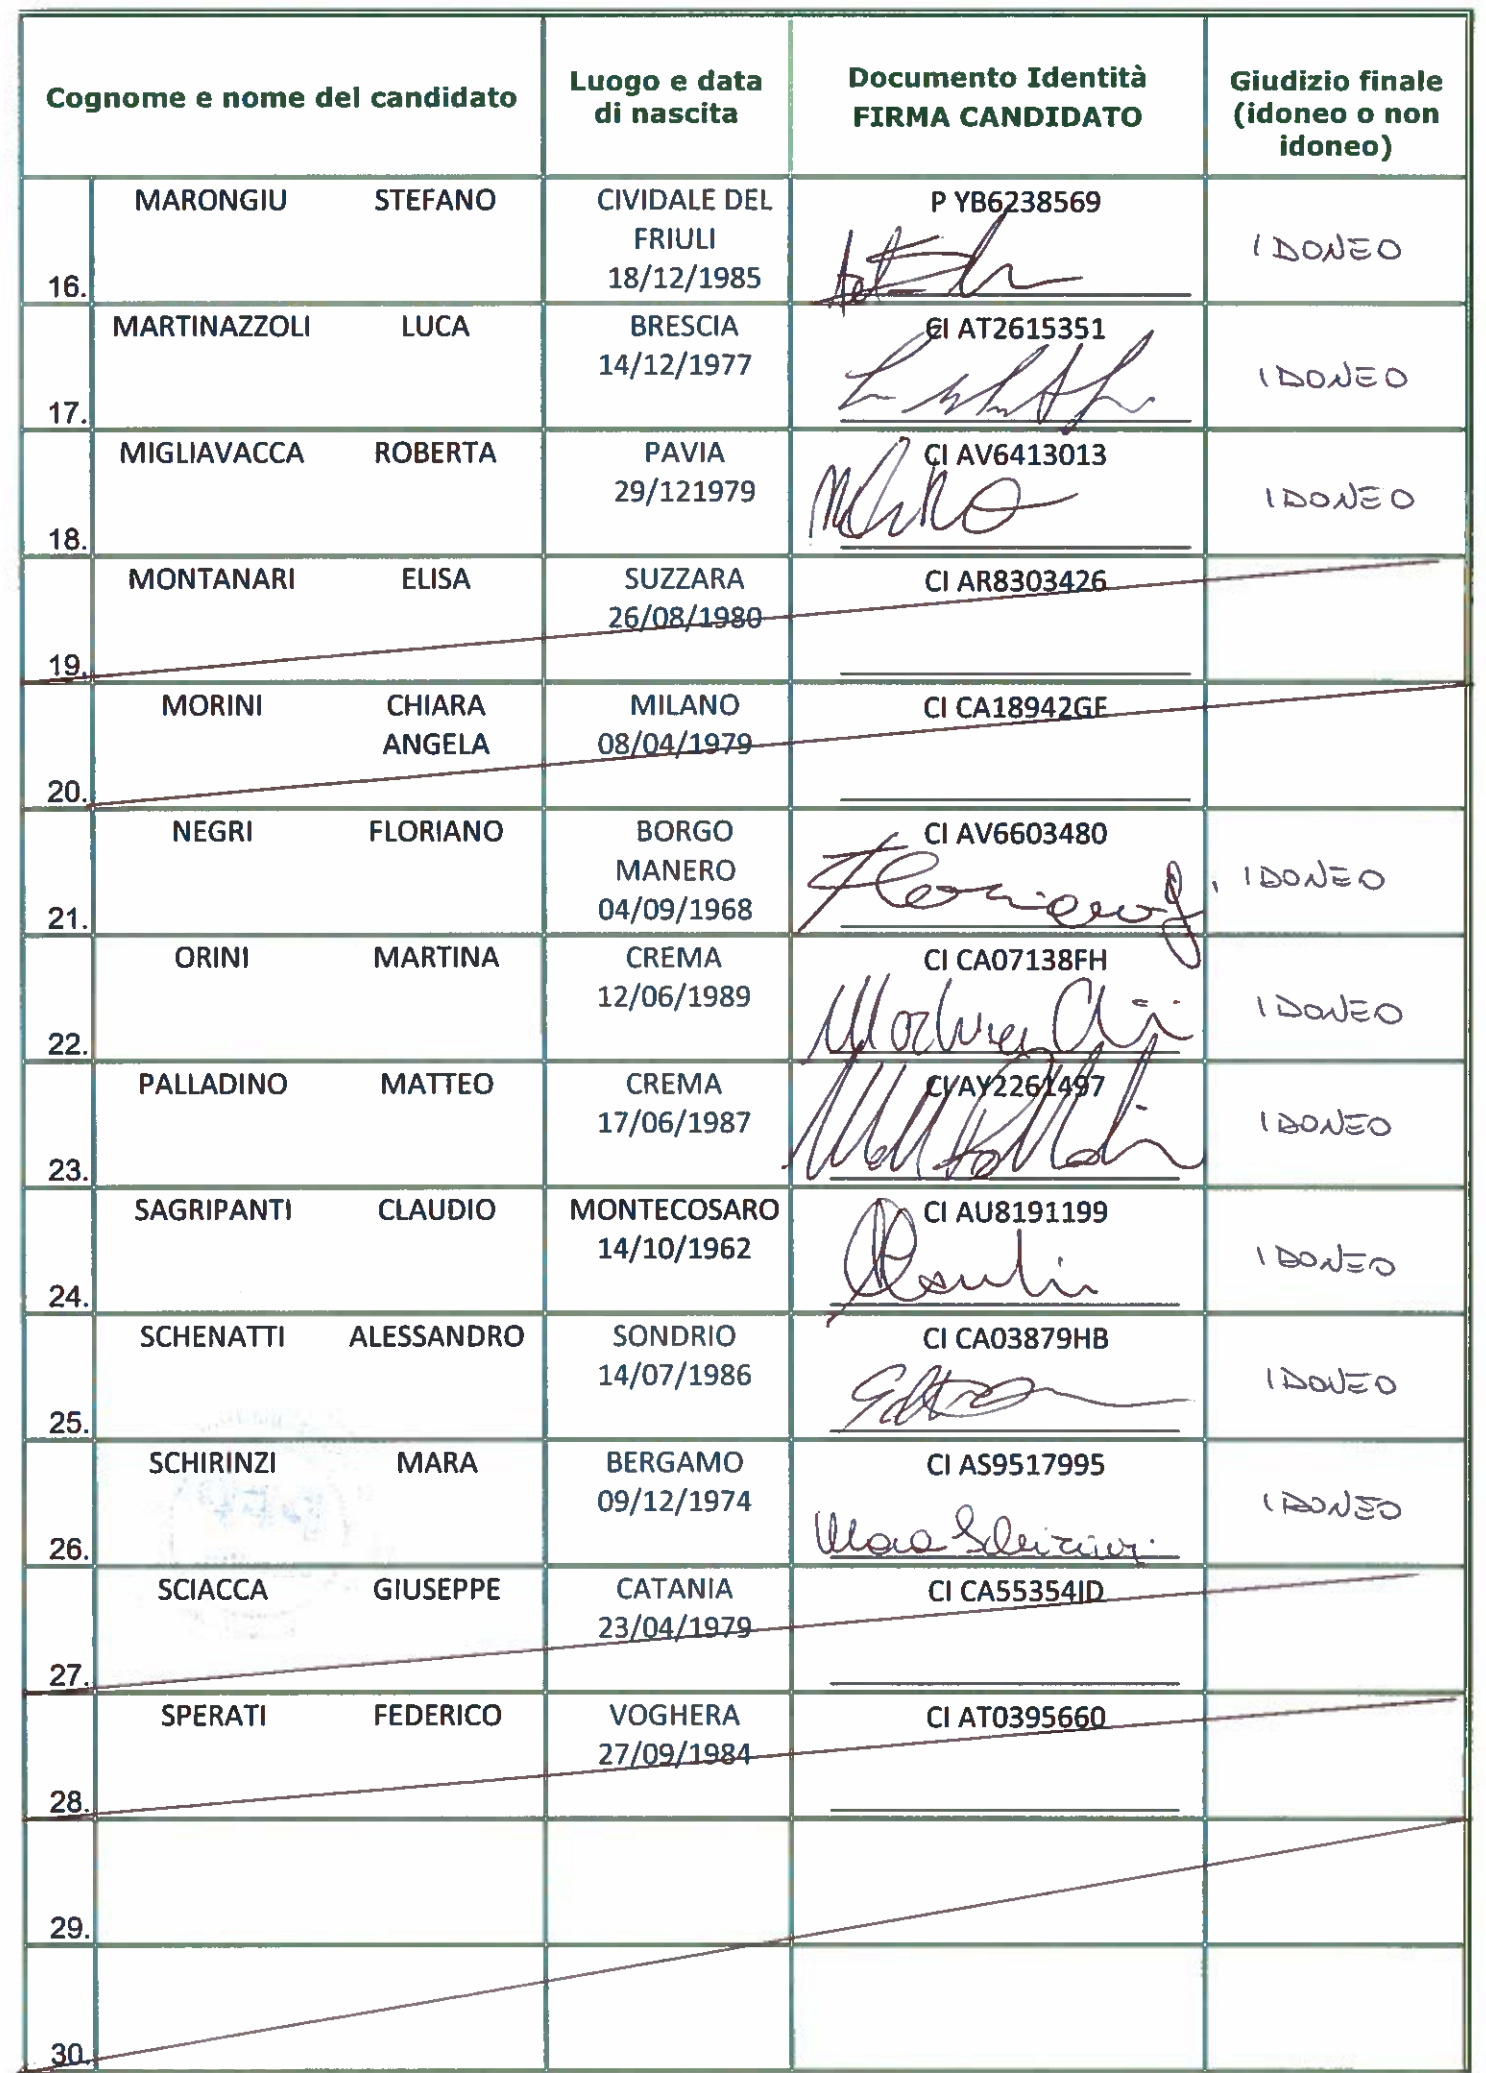 Cognome e nome del candidato
Luogo e data
di nascita
Documento Identità
FIRMA CANDIDATO
Giudizio finale
(idoneo o non
idoneo)
16. MARONGIU STEFANO
CIVIDALE DEL
FRIULI
18/12/1985
P YB6238569
IDONEO
17. MARTINAZZOLI LUCA
BRESCIA
14/12/1977
CI AT2615351
IDONEO
18. MIGLIAVACCA ROBERTA
PAVIA
29/121979
CI AV6413013
IDONEO
19. MONTANARI ELISA
SUZZARA
26/08/1980
CI AR8303426
20. MORINI CHIARA
ANGELA
MILANO
08/04/1979
CI CA18942GE
21. NEGRI FLORIANO
BORGO
MANERO
04/09/1968
CI AV6603480
IDONEO
22. ORINI MARTINA
CREMA
12/06/1989
CI CA07138FH
IDONEO
23. PALLADINO MATTEO
CREMA
17/06/1987
CI AY2261497
IDONEO
24. SAGRIPANTI CLAUDIO
MONTECOSARO
14/10/1962
CI AU8191199
IDONEO
25. SCHENATTI ALESSANDRO
SONDRIO
14/07/1986
CI CA03879HB
IDONEO
26. SCHIRINZI MARA
BERGAMO
09/12/1974
CI AS9517995
Mara Schirinzi
IDONEO
27. SCIACCA GIUSEPPE
CATANIA
23/04/1979
CI CA55354ID
28. SPERATI FEDERICO
VOGHERA
27/09/1984
CI AT0395660
29.
30.